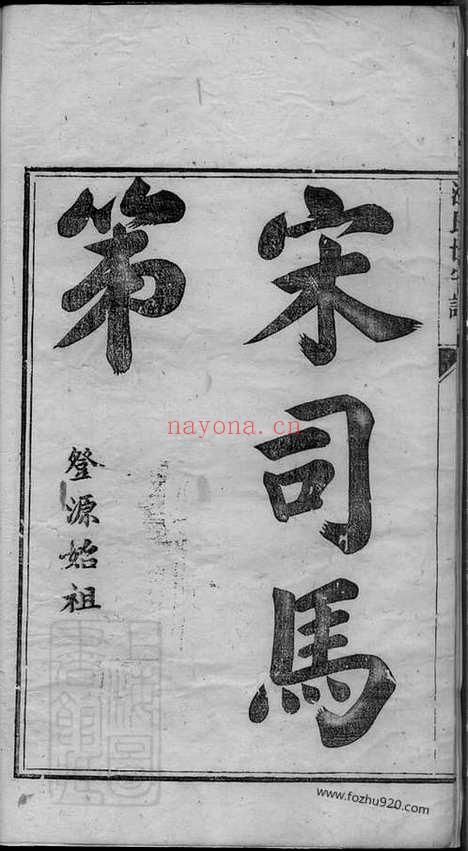 宋司馬
第
登源始祖
nayona.cn
www.fozhu920.com